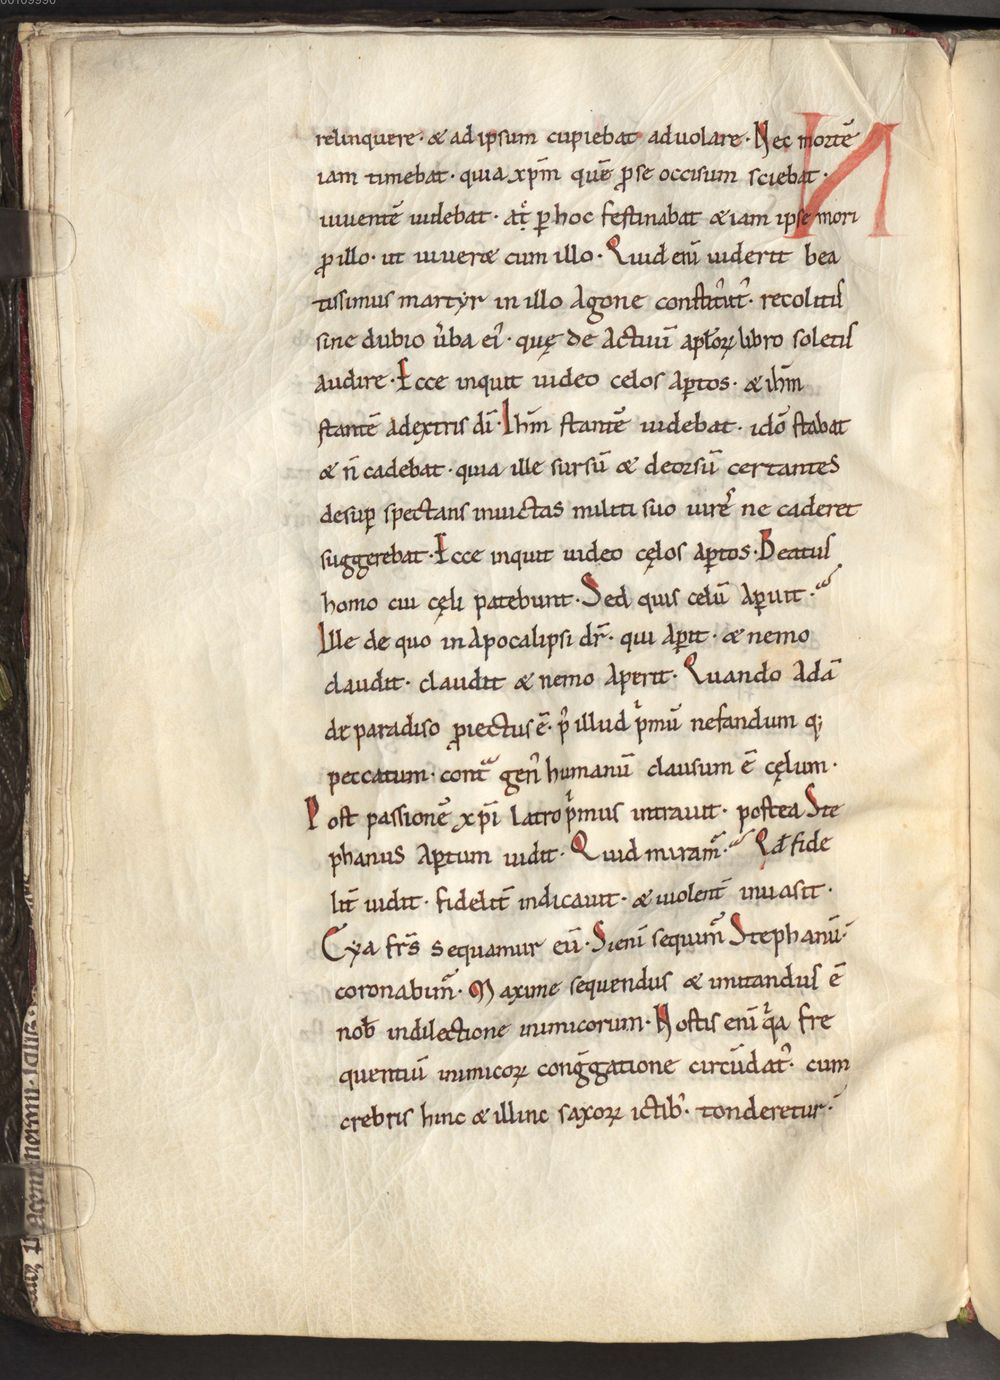 00109990
relinquere· & ad ipsum cupiebat aduolare· Nec mortē
iam timebat· quia xp̄m quē ꝓ se occisum sciebat·
uiuentē uidebat· atq; ꝑ hoc festinabat & iam ipse mori
ꝓ illo· ut uiueret cum illo· Quid eni uiderit bea
tissimus martyr in illo agone constitut᷒· recolitis
sine dubio uba ei᷒· quę de actuū aplorꝝ libro soletis
audire· Ecce inquit uideo celos aꝑtos· & ihm̄
stantē adextris dī· Ihm̄ stantē uidebat· idō stabat
& n̄ cadebat· quia ille sursū & deorsū certantes
desuꝑ spectans inuictas militi suo uires ne caderet
suggerebat· Ecce inquit uideo cęlos aꝑtos· Beatus
homo cui cęli patebunt· Sed quis celū aꝑuit·
Ille de quo in apocalipsi dr̄· qui aꝑit· & nemo
claudit· claudit & nemo aperit· Quando adā
de paradiso ꝓiectus ē· p᷒ illud pmū nefandum q;
peccatum· cont gen᷒ humanū clausum ē cęlum·
Post passionē xp̄i latro pmus intrauit· postea Ste
phanus aꝑtum uidit· Quid miram· Qd fide
lit̄ uidit· fidelit̄ indicauit· & uiolent̄ inuasit·
Eya frs̄ sequamur eū· Si eni sequim Stephanū·
coronabim· Maxime sequendus & imitandus ē
nob̄ indilectione inimicorum· Nostis eni qa fre
quentiū inimicoꝝ conggatione circūdat᷒· cum
crebris hinc & illinc saxoꝝ ictib᷒· tonderetur·
N